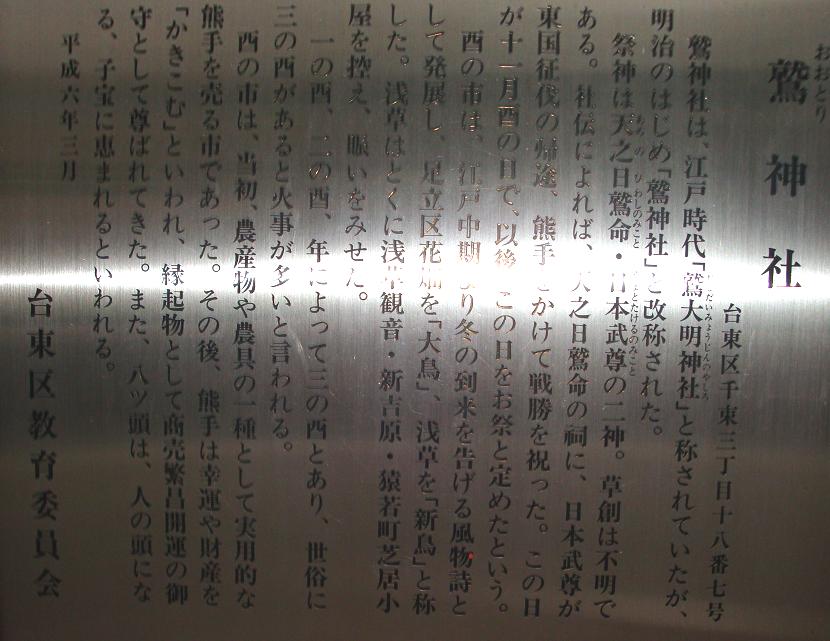 おおとり
鷲神社
台東区千束三丁目十八番七号
鷲神社は、江戸時代「鷲大明神社」と称されていたが、
だいみょうじんのやしろ
明治のはじめ「鷲神社」と改称された。
祭神は天之日鷲命・日本武尊の二神。草創は不明で
あめのひわしのみこと
とたけるのみこと
ある。社伝によれば、天之日鷲命の祠に、日本武尊が
東国征伐の帰途、熊手をかけて戦勝を祝った。この日
が十一月酉の日で、以後、この日をお祭と定めたという。
酉の市は、江戸中期より冬の到来を告げる風物詩と
して発展し、足立区花畑を「大鳥」、浅草を「新鳥」と称
した。浅草はとくに浅草観音・新吉原・猿若町芝居小
屋を控え、賑いをみせた。
一の酉、二の酉、年によって三の酉とあり、世俗に
三の酉があると火事が多いと言われる。
酉の市は、当初、農産物や農具の一種として実用的な
熊手を売る市であった。その後、熊手は幸運や財産を
「かきこむ」といわれ、縁起物として商売繁昌開運の御
守として尊ばれてきた。また、八ツ頭は、人の頭にな
る、子宝に恵まれるといわれる。
平成六年三月
台東区教育委員会